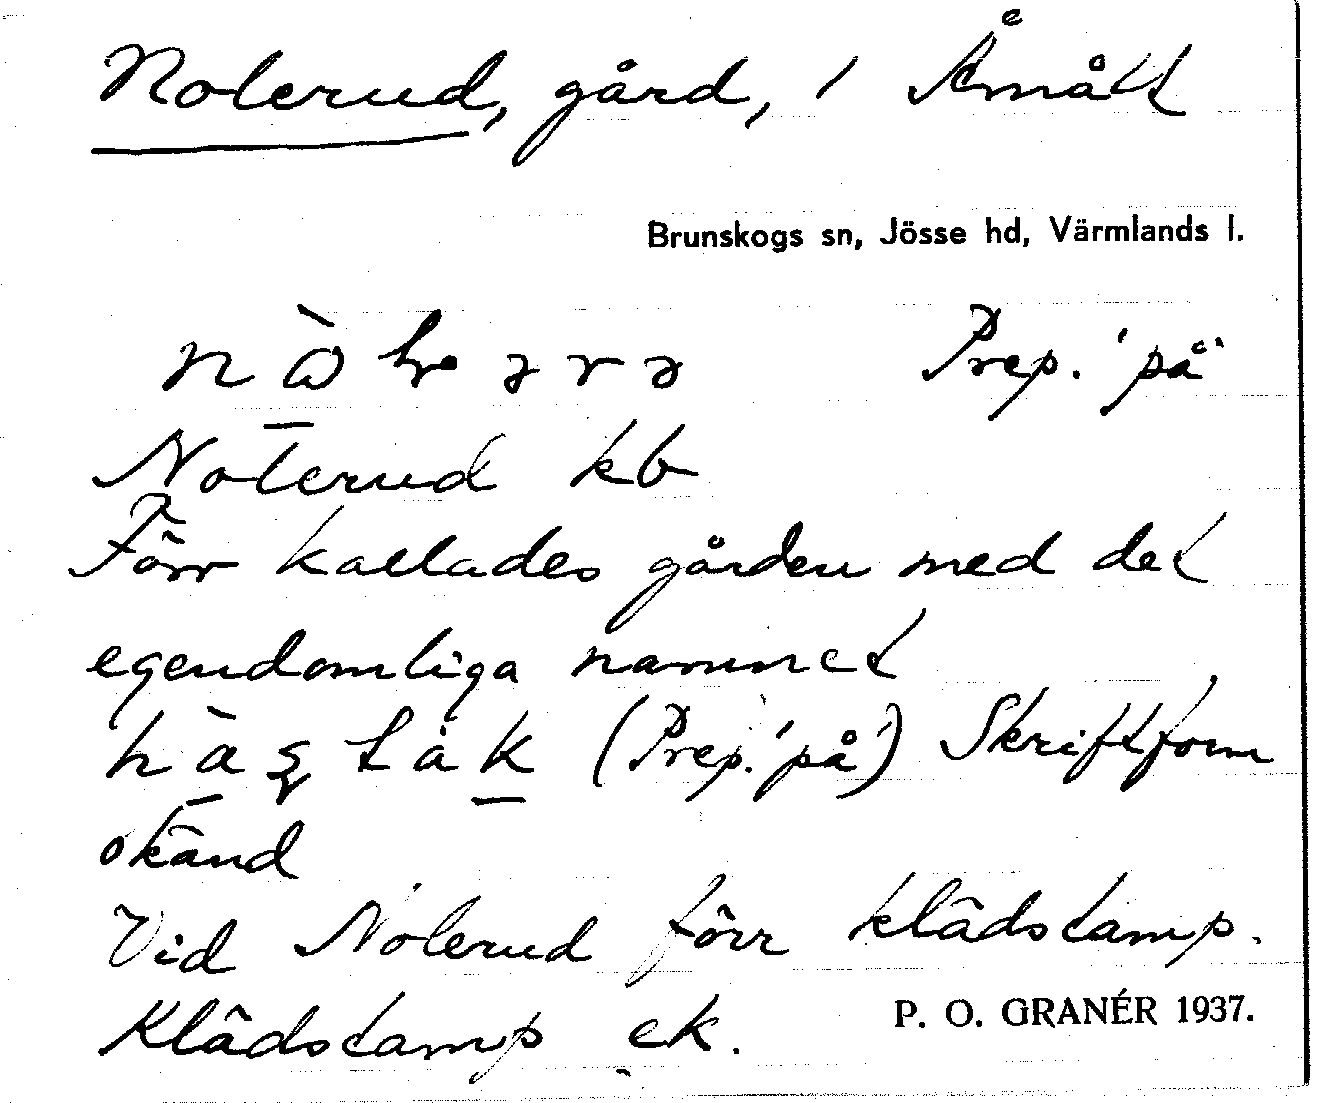 Nolerud, gård, i Åmått
Brunskogs sn, Jösse hd, Värmlands l.
Prep. 'på'
Nolerud kb
Förr kallades gården med det
egendomliga namnet
(Prep. 'på') Skriftform
okänd
Vid Nolerud förr klädstamp.
Klädstamp ek.
P. O. GRANÉR 1937.